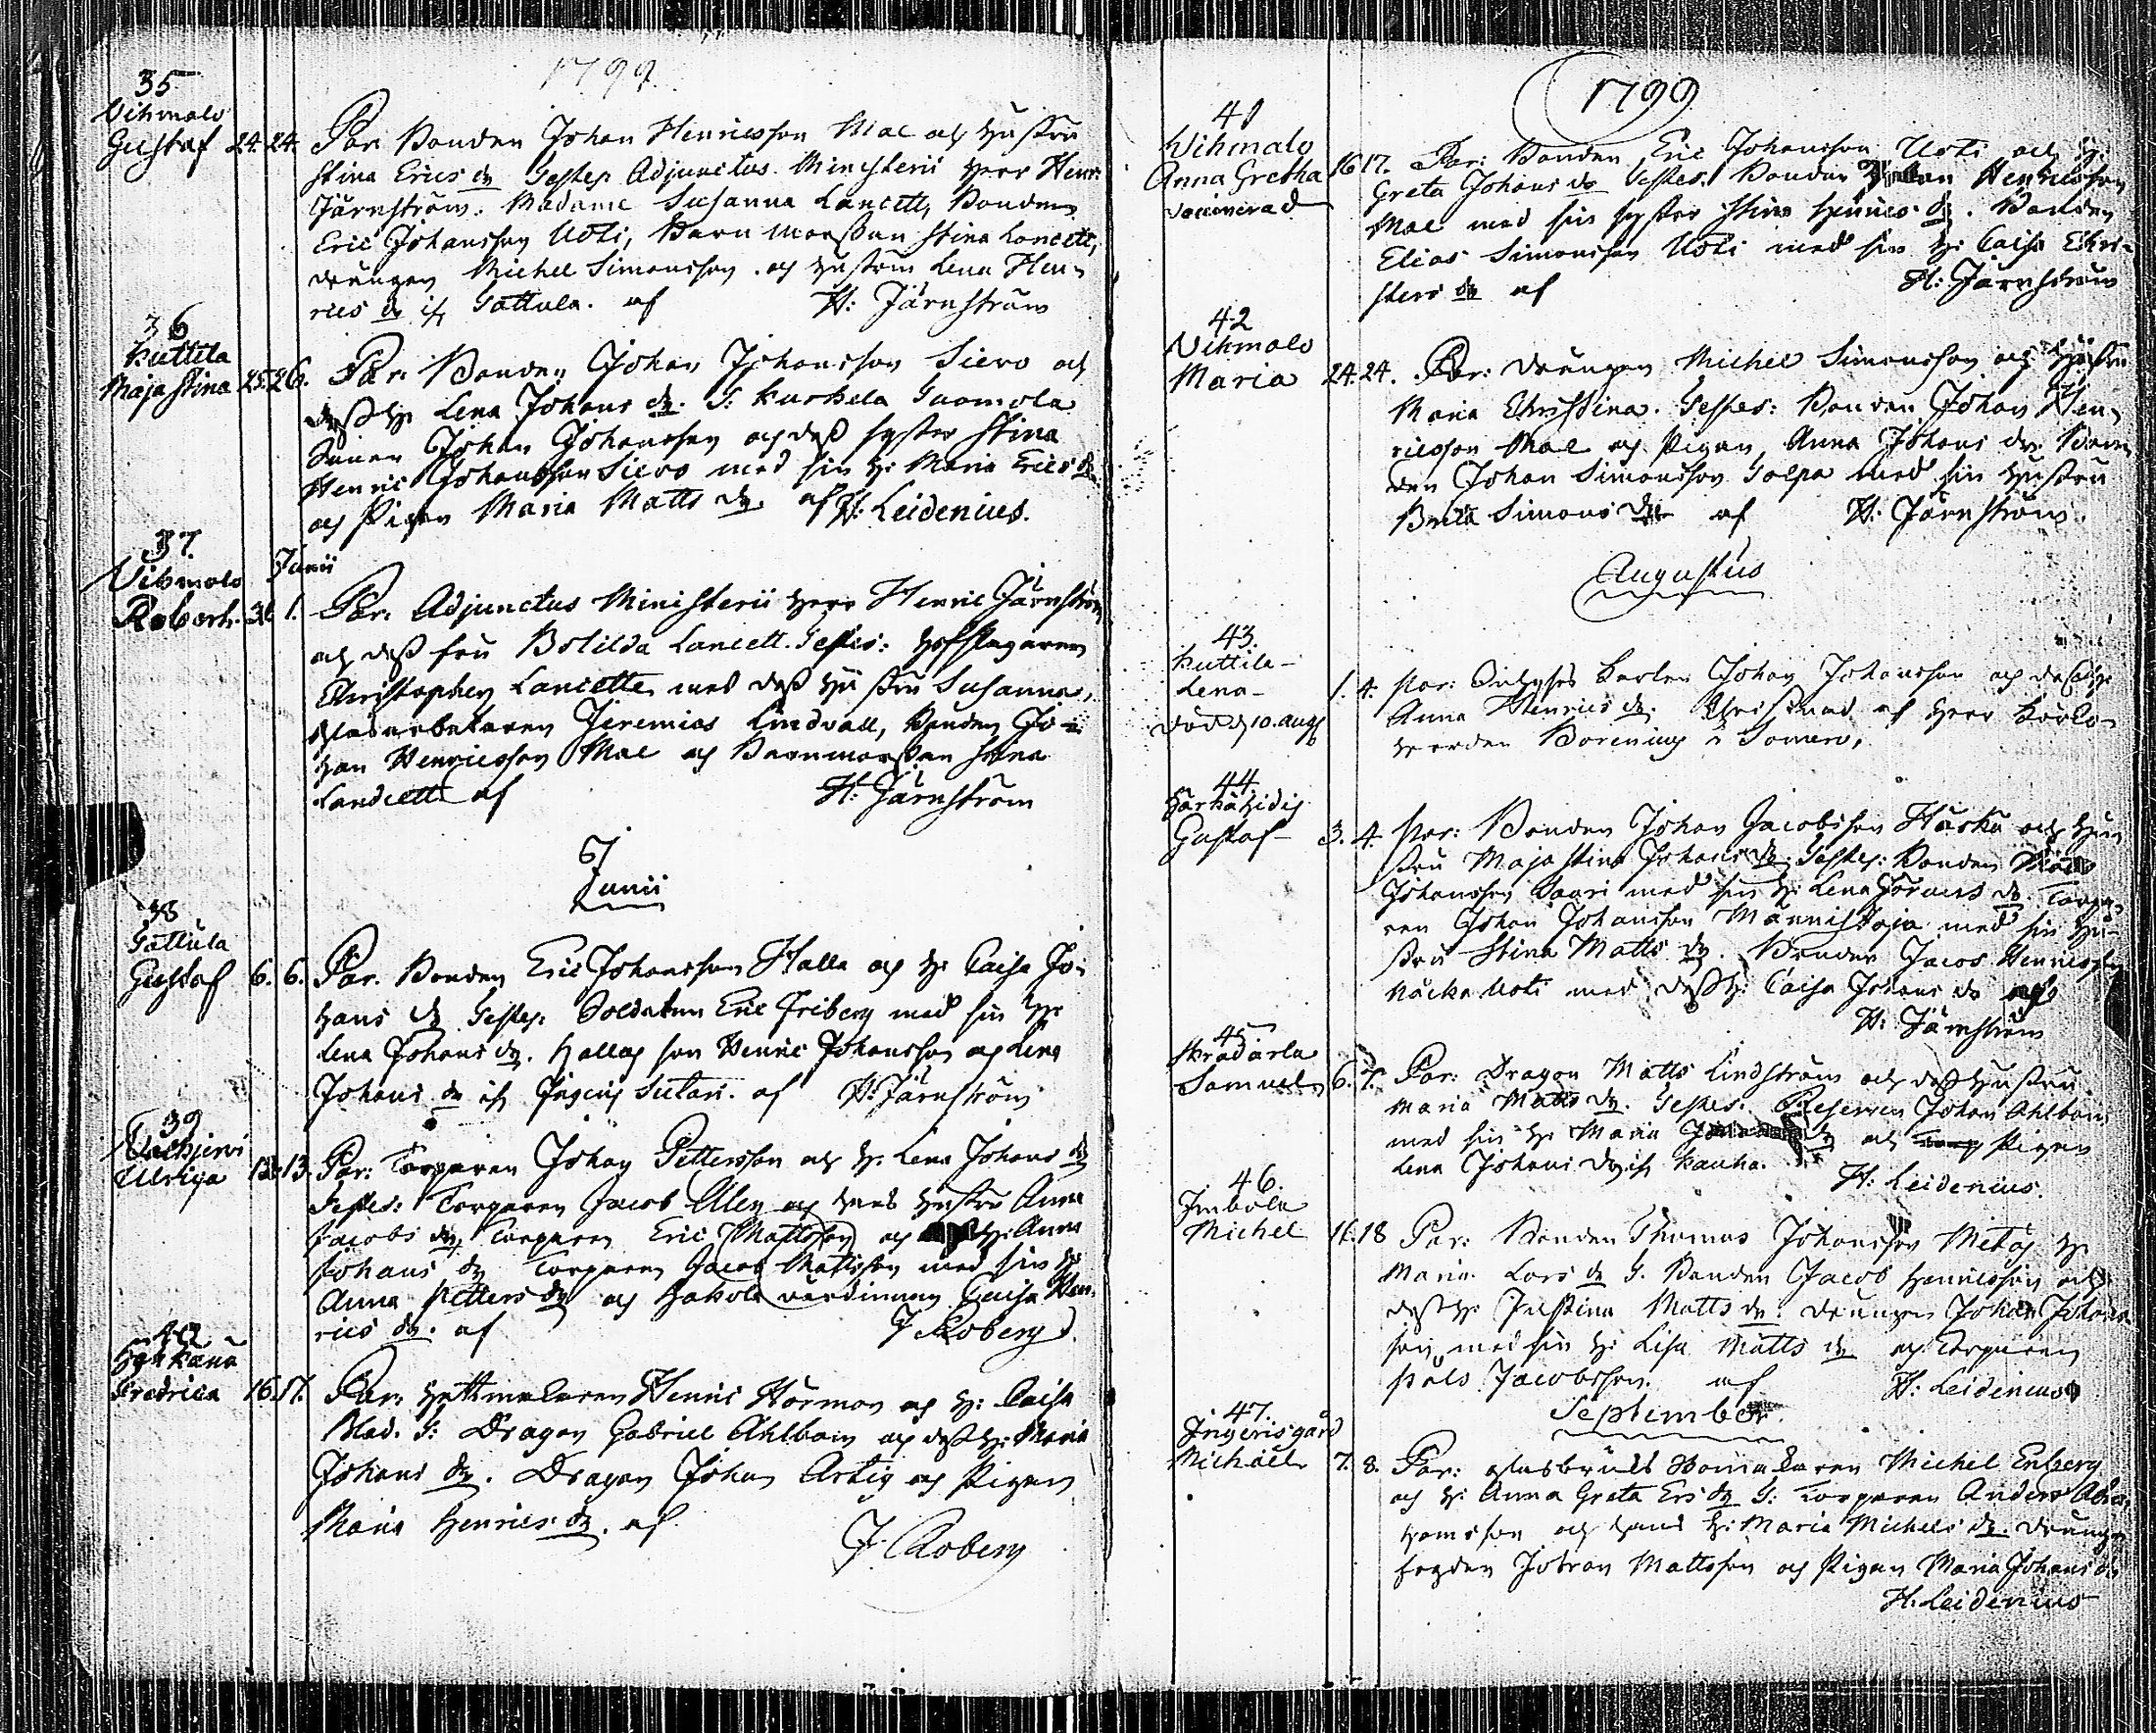 1799.
35
Vihmalo
Gustaf 24. 24. Par. Bonden Johan Henricsson Mac och hustru
Stina Erics dr Testes Adjunctus Ministerii Herr Henr:
Järnström. Madame Susanna Lancett, Bonden
Eric Johansson Uoti, Barnmorskan Stina Lancett,
drängen Michel Simonsson och hustrun Lena Hen-
rics dr if Tattula. af H: Järnström
36
Kuttila
Maja Stina 25. 26. Par. Bonden Johan Johansson Siero och
dess h: Lena Johans dr. T: Kuskela
Sonen Johan Johansson och dess syster Stina
Henric Johansson Siero med sin h: Maria Erics dr
och Pigan Maria Matts dr. af H: Leidenius.
37.
Junii
Vihmalo
Robert. 31 1. Par. Adjunctus Ministerii Herr Henric Järnström
och dess fru Botilda Lancett. Testes: Hofslagaren
Christopher Lancette med dess hustru Susanna,
Glasarbetaren Jeremias Lindvall, Bonden Jo-
han Henricsson Mac och Barnmorskan Stina
Landcett af H: Järnström
67
Junii
38
Tattula
Gustaf 6. 6. Par. Bonden Eric Johansson Halla och h: Caisa Jo-
hans dr Testes. Soldaten Eric Friberg med sin h:
Lena Johans dr. Hallas son Henric Johansson och Lena
Johans dr if af H: Järnström
39
Ulrica 12. 13. Par: Torparen Johan Pettersson och h: Lena Johans dr
Testes: Torparen Jacob och hans hustru Anna
Jacobs dr, Torparen Eric Mattsson och h: Anna
Johans dr Torparen Jacob Mattsson med sin h:
Anna Petters dr och värdinnan Caisa Hen-
rics dr. af J Roberg.
40
Fredrica 16. 17. Par: Hattmakaren Henric Hörman och h: Caisa
Blad. T: Dragon Gabriel Ahlbom och dess h: Maria
Johans dr. Dragon Johan Artig och Pigan
Maria Henrics dr. af
J. Roberg
1799
41
Wihmalo
Anna Gretha 16 17. Par: Bonden Eric Johansson Uoti och h:
Greta Johans dr Testes. Bonden Johan Henricsson
Mac med sin syster Stina Henrics dr. Bonden
Elias Simonsson Uoti med sin h: Caisa Chri-
sters dr af H: Järnström
42
Vihmalo
Maria 24. 24. Par: drängen Michel Simonsson och hustru
Maria Christina. Testes: Bonden Johan Hen-
ricsson Mac och Pigan Anna Johans dr. Bon-
den Johan Simonsson Tolpa med sin hustru
Brita Simons dr af H: Järnström.
Augustus
43.
Kuttila-
Lena-
död d 10. Aug 1. 4. Par: Johan Johansson och dess h:
Anna Henrics dr. Christnad af Herr Kyrko-
herden Borenius i Somero.
44.
Gustaf- 3. 4. Par: Bonden Johan Jacobsson Härkä och hu-
stru Maja Stina Johans dr. Testes: Bonden Matts
Johansson Saari med sin h: Lena dr. Torpa-
ren Johan Johansson Männistöja med sin hu-
stru Stina Matts dr. Bonden Jacob Henricsson
Uoti med dess h: Caisa Johans dr af
H: Järnström
45
Skradarla
Samuel 6. 7. Par: Dragon Matts Lindström och dess hustru
Maria Matts dr. Testes. Reserven Johan Ahlbom
med sin h: Maria dr och Pigan
Lena Johans dr if Kauha. H: Leidenius.
46.
Imbola
Michel 16. 18 Par: Bonden Thomas Johansson h:
Maria Lars dr T. Bonden Jacob Henricsson och
dess h: Justina Matts dr. drängen Johan Johans-
son med sin h: Lisa Matts dr och Torparen
Påls Jacobsson. af H: Leidenius
September.
47.
Ingerisgård
Michaël 7. 8. Par: Glasbruks Michel Enberg
och h: Anna Greta Ers dr T: Torparen Anders Abra-
hamsson och hans h: Maria Michels dr. drängen
Mattsson och Pigan Maria Johans dr
H. Leidenius